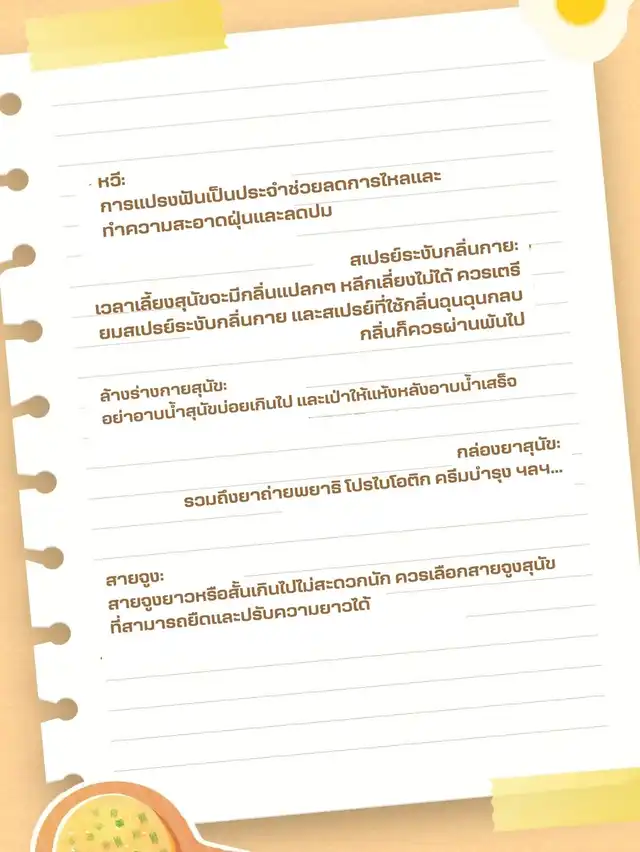 หวี:
การแปรงฟันเป็นประจำช่วยลดการไหลและ
ทำความสะอาดฝุ่นและลดปม
สเปรย์ระงับกลิ่นกาย:
เวลาเลี้ยงสุนัขจะมีกลิ่นแปลกๆ หลีกเลี่ยงไม่ได้ ควรเตรี
ยมสเปรย์ระงับกลิ่นกาย และสเปรย์ที่ใช้กลิ่นฉุนฉุนกลบ
กลิ่นก็ควรผ่านพ้นไป
ล้างร่างกายสุนัข:
อย่าอาบน้ำสุนัขบ่อยเกินไป และเป่าให้แห้งหลังอาบน้ำเสร็จ
กล่องยาสุนัข:
รวมถึงยาถ่ายพยาธิ โปรไบโอติก ครีมบำรุง ฯลฯ...
สายจูง:
สายจูงยาวหรือสั้นเกินไปไม่สะดวกนัก ควรเลือกสายจูงสุนัข
ที่สามารถยืดและปรับความยาวได้